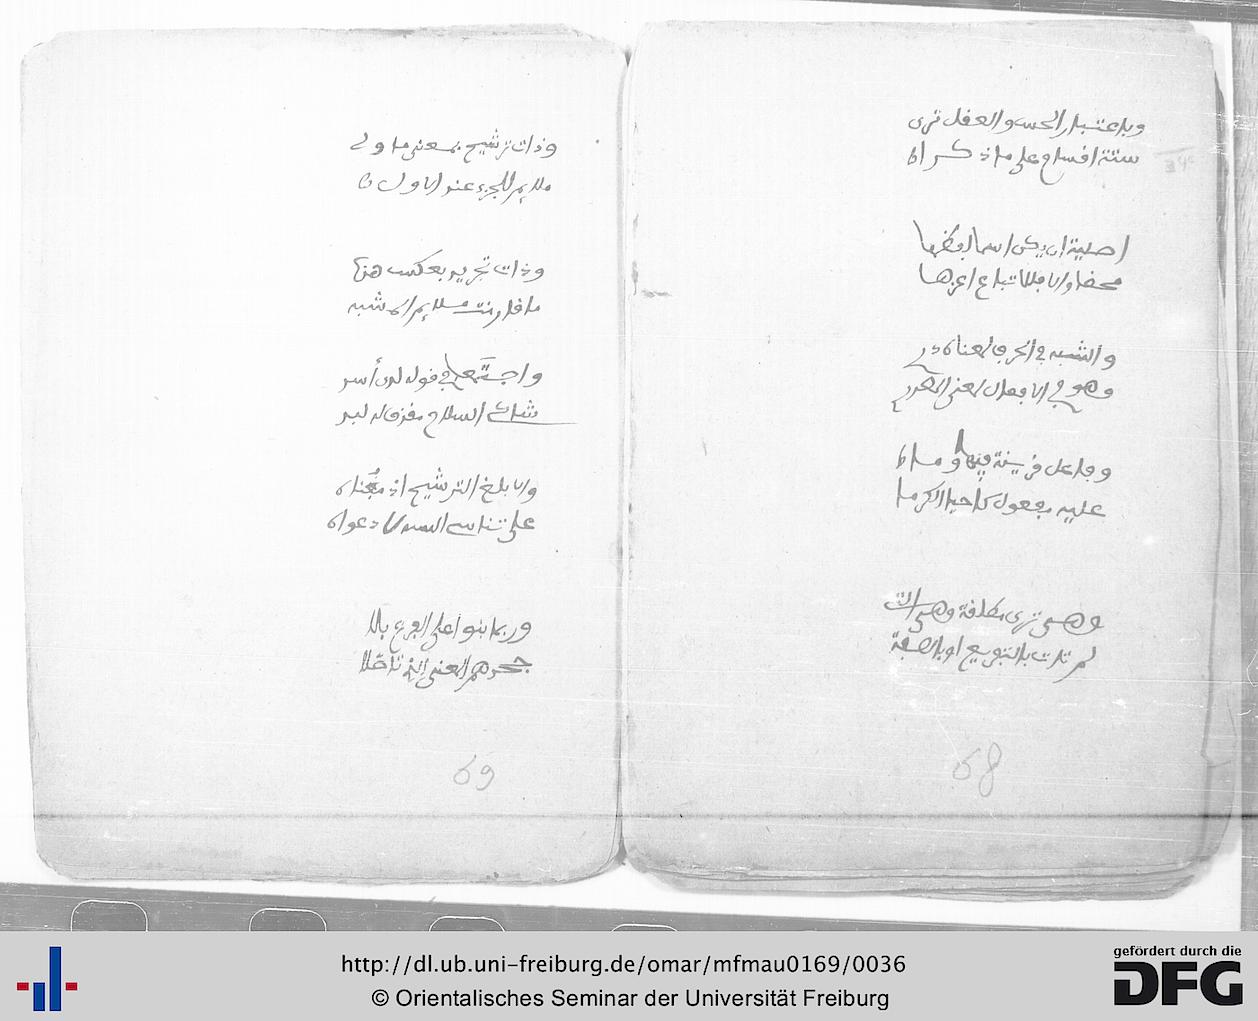 وباعتبار الحس والعقل ترى
ستة اقسام على ما ذكرا
اصلية ان يكن اسما لفظها
محضا والا فللاتباع اعزها
والشبه في الحرف لمعناه در
وهو في الافعال لمعنى المصدر
وفاعل قرينة فيها وما
عليه مفعول كاحيا الكرما
وهي ترى مطلقة وهي الت
لم تات بالتفريع او بالصفة
68
وذات ترشيح بمعنى ما ولي
ملايم للجزء عند الاول
وذات تجريد بعكس هذا
ما قارنت ملايم المشبه
واجتمعا في قوله لدى أسد
شاكي السلاح مقذف له لبد
والابلغ الترشيح اذ مبناه
على تناسي الشبه لا دعواه
وربما بنوا على الفرع بلا
جحدهم لمعنى الذ تاصلا
69
http://dl.ub.uni-freiburg.de/omar/mfmau0169/0036
© Orientalisches Seminar der Universität Freiburg
gefördert durch die
DFG